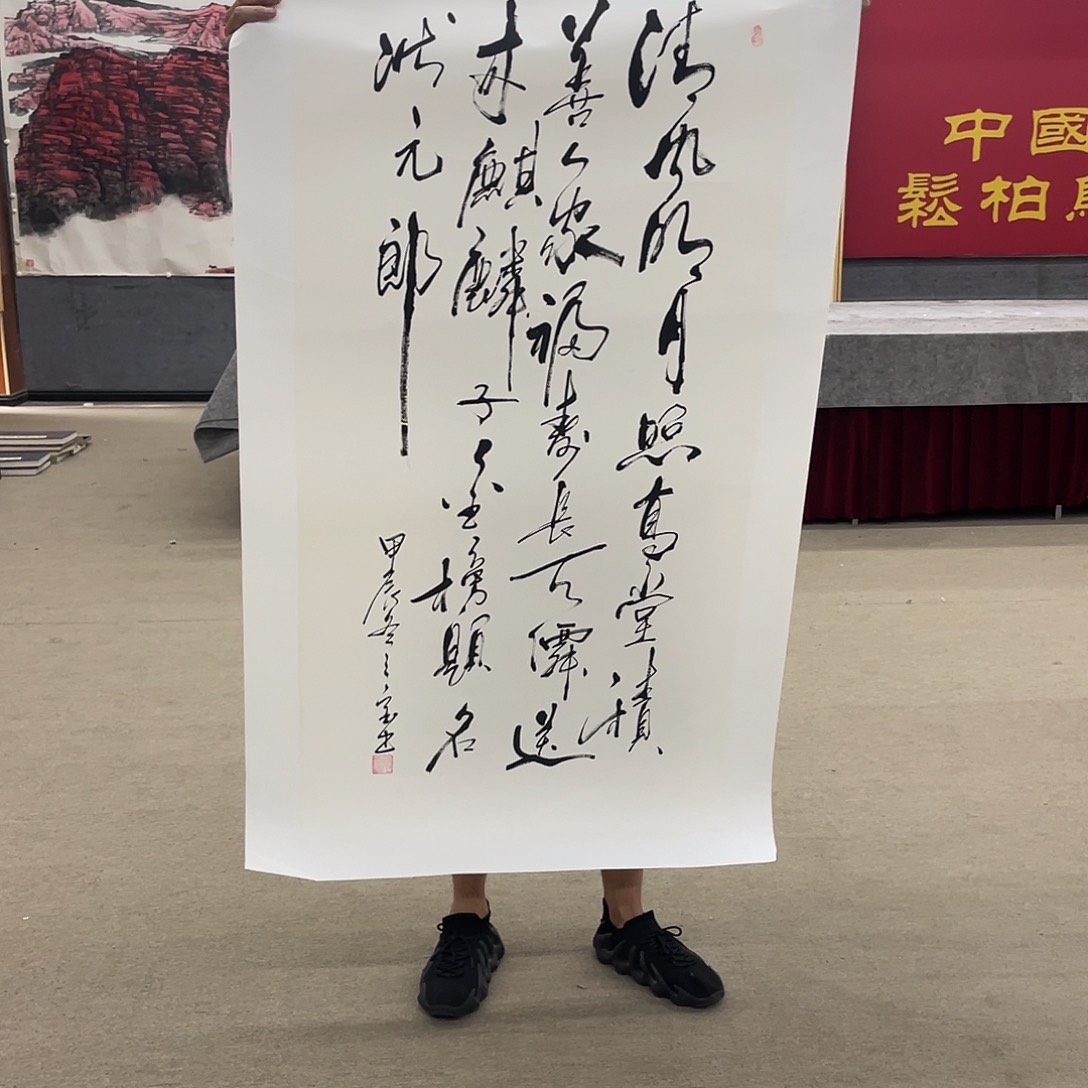 清风明月照高堂積
善人家福壽長天僊送
来麒麟子金榜題名
状元郎
甲辰冬
中國
鬆柏